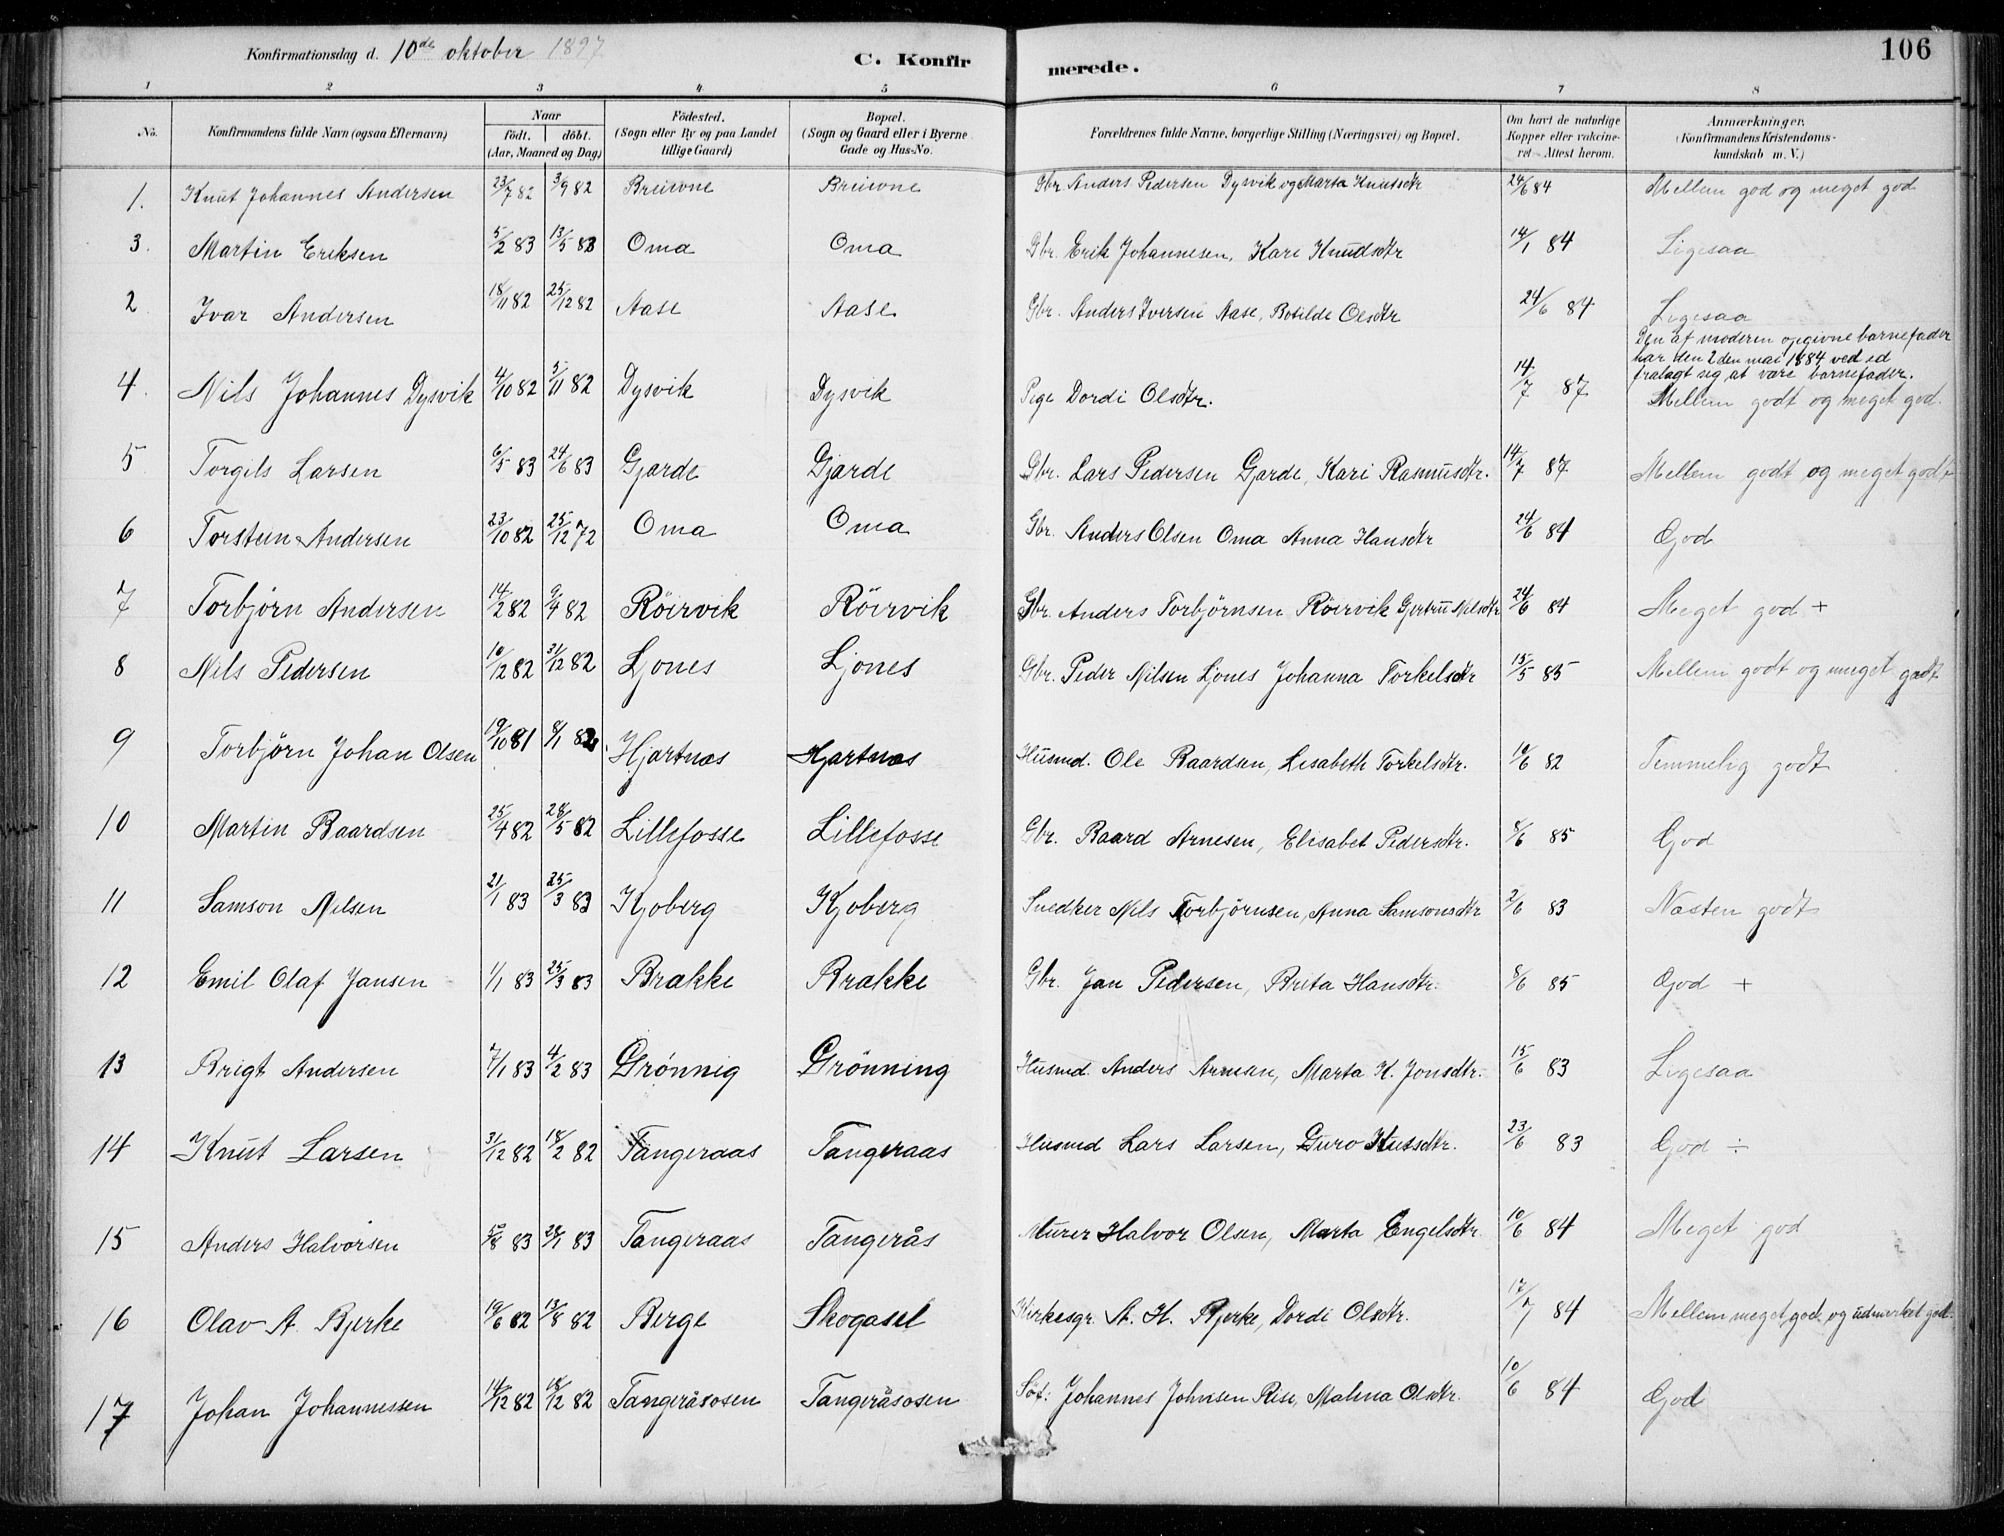 106
Konfirmationsdag d. 10de oktober 1897
C. Konfirmerede.
1 2 3 4 5 6 7 8
No. Konfirmandens fulde Navn (ogsaa Efternavn) Naar født. døbt. (Aar, Maaned og Dag) Födested. (Sogn eller By og paa Landet tillige Gaard) Bopæl. (Sogn og Gaard eller i Byerne Gade og Hus-No. Forældrenes fulde Navne, borgerlige Stilling (Næringsvei) og Bopæl. Om havt de naturlige Kopper eller vakcineret – Attest herom. Anmærkninger. (Konfirmandens Kristendomskundskab m. V.)
1. Knut Johannes Andersen 23/7 82 3/9 82 Gbr. Anders Pedersen Dysvik og Marta Knutsdtr 24/6 84 Mellem god og meget god
3. Martin Eriksen 5/2 83 13/5 83 Oma Oma Gbr. Erik Johannesen, Kari Knudsdtr 14/1 84 Ligesaa
2 Ivar Andersen 18/11 82 25/12 82 Aase Aase Gbr. Anders Iversen Aase, Botilde Olsdtr 24/6 84 Ligesaa
Den af moderen opgivne barnefader
har den 2den mai 1884 ved ed
fralagt sig, at være barnefader.
4. Nils Johannes Dysvik 4/10 82 5/11 82 Dysvik Dysvik Pige Dordi Olsdtr. 14/7 87 Mellem godt og meget god.
5 Torgils Larsen 6/5 83 24/6 83 Gjarde Gjarde Gbr. Lars Pedersen Gjarde, Kari Rasmusdtr. 14/7 87 Mellem godt og meget godt
6 Torstein Andersen 23/10 82 25/12 72 Oma Oma Gbr. Anders Olsen Oma Anna Hansdtr 24/6 84 God
7 Torbjörn Andersen 14/2 82 9/4 82 Röirvik Röirvik Gbr. Anders Torbjörnsen Röirvik Gjertru Nilsdtr 24/6 84 Meget god +
8 Nils Pedersen 10/12 82 31/12 82 Ljones Ljones Gbr. Peder Nilsen Ljones Johanna Torkelsdtr 15/5 85 Mellem godt og meget godt
9 Torbjörn Johan Olsen 19/10 81 8/1 82 Hjartnæs Hjartnæs Husmd. Ole Baardsen, Lisabeth Torkelsdtr. 10/6 82 Temmelig godt
10 Martin Baardsen 25/4 82 28/5 82 Lillefosse Lillefosse Gbr. Baard Arnesen, Elisabet Pedersdtr. 8/6 85 God
11 Samson Nilsen 21/1 83 25/3 83 Kjoberg Kjoberg Snedker Nils Torbjörnsen, Anna Samsonsdtr 2/6 83 Næsten godt
12 Emil Olaf Jansen 1/1 83 25/3 83 Brakke Brakke Gbr. Jan Pedersen, Brita Hansdtr. 8/6 85 God +
13 Brigt Andersen 7/1 83 4/2 83 Grönnig Grönning Husmd. Anders Arnesen, Marta K. Jonsdtr. 15/6 83 Ligesaa
14 Knut Larsen 31/12 82 18/2 82 Tangeraas Tangeraas Husmd Lars Larsen, Guro Knutsdtr. 23/6 83 God ÷
15 Anders Halvorsen 83 28/1 83 Tangeraas Tangerås Murer Halvor Olsen, Marta Engelsdtr. 10/6 84 Meget god
16 Olav A. Bjerke 19/6 82 13/8 82 Berge Skogasel Kirkesgr. A. H. Bjerke, Dordi Olsdtr. 17/7 84 Mellem meget god og udmerket god.
17 Johan Johannessen 14/12 82 18/12 82 Tangeråsosen Tangeråsosen Johannes Johnsen Rise, Malena Olsdtr. 10/6 84 God